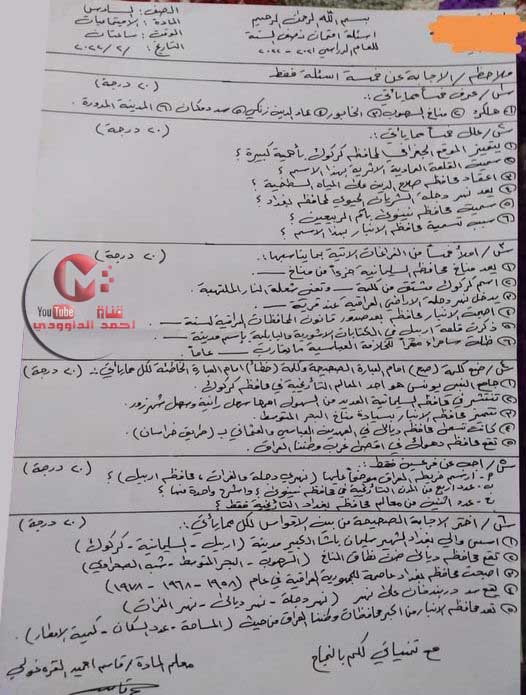 بسم الله الرحمن الرحيم
اسئلة امتحان نصف السنة
للعام الدراسي ٢٠٢١ - ٢٠٢٢
الصف / السادس
المادة / الاجتماعيات
الوقت / ساعتان
التاريخ / ٢ / ٢٠٢٢
ملاحظة / الاجابة عن خمسة اسئلة فقط
س١/ عرف خمساً مما يأتي :. (٢٠ درجة)
① هلكرد ② مناخ السهوب ③ الخابور ④ عماد الدين زنكي ⑤ سد دوكان ⑥ المدينة المدورة .
س٢/ علل خمساً مما يأتي :. (٢٠ درجة)
① يتميز الموقع الجغرافي لمحافظة كركوك بأهمية كبيرة ؟
② سميت القلعة العمادية الاثرية بهذا الاسم ؟
③ اعتماد محافظة صلاح الدين على المياه السطحية ؟
④ يعد نهر دجلة الشريان الحيوي لمحافظة بغداد ؟
⑤ سميت محافظة نينوى بأم الربيعين ؟
⑥ سبب تسمية محافظة الانبار بهذا الاسم ؟
س٣/ املأ خمساً من الفراغات الاتية بما يناسبها :. (٢٠ درجة)
① يعد مناخ محافظة السليمانية جزءاً من مناخ ــــ .
② اسم كركوك مشتق من كلمة ــــ وتعني شعلة النار الملتهبة .
③ يدخل نهر دجلة الاراضي العراقية عند قرية ــــ .
④ اصبحت الانبار محافظة بعد صدور قانون المحافظات العراقية لسنة ــــ .
⑤ ذكرت قلعة اربيل في الكتابات الاشورية والبابلية باسم مدينة ــــ .
⑥ ظلت سامراء مقراً للخلافة العباسية ما يقارب ــــ عاماً .
You Tube
قناة
احمد الداوودي
س٤/ ضع كلمة (صح) امام العبارة الصحيحة وكلمة (خطأ) امام العبارة الخاطئة لكل مما يأتي :. (٢٠ درجة)
① جامع النبي يونس هو احد المعالم التاريخية في محافظة كركوك .
② تنتشر في محافظة السليمانية العديد من السهول اهمها سهل رانية وسهل شهرزور .
③ تتميز محافظة الانبار بسيادة مناخ البحر المتوسط .
④ كانت تسمى محافظة ديالى في العهدين العباسي والعثماني ب (طريق خراسان) .
⑤ تقع محافظة دهوك في اقصى غرب وطننا العراق .
س٥/ اجب عن فرعين فقط :. (٢٠ درجة)
أ- ارسم خريطة العراق موضحاً عليها (نهري دجلة والفرات ، محافظة اربيل) ؟
ب- عدد اربع من المدن التاريخية في محافظة نينوى ؟ واشرح واحدة منها ؟
ج- عدد اثنين من معالم محافظة بغداد التاريخية فقط ؟
س٦/ اختر الاجابة الصحيحة من بين الاقواس لكل مما يأتي :. (٢٠ درجة)
① اسس والي بغداد الشهير سليمان باشا الكبير مدينة (اربيل - السليمانية - كركوك)
② تقع محافظة ديالى ضمن نطاق المناخ (السهوب - البحر المتوسط - شبه الصحراوي)
③ اصبحت محافظة بغداد عاصمة للجمهورية العراقية في عام (١٩٥٨ - ١٩٦٨ - ١٩٧٨)
④ يقع سد دربندخان على نهر (نهر دجلة - نهر ديالى - نهر الفرات)
⑤ تعد محافظة الانبار من اكبر محافظات وطننا العراق من حيث (المساحة - عدد السكان - كمية الامطار) .
مع تمنياتي لكم بالنجاح
معلم المادة / قاسم احمد القره غولي